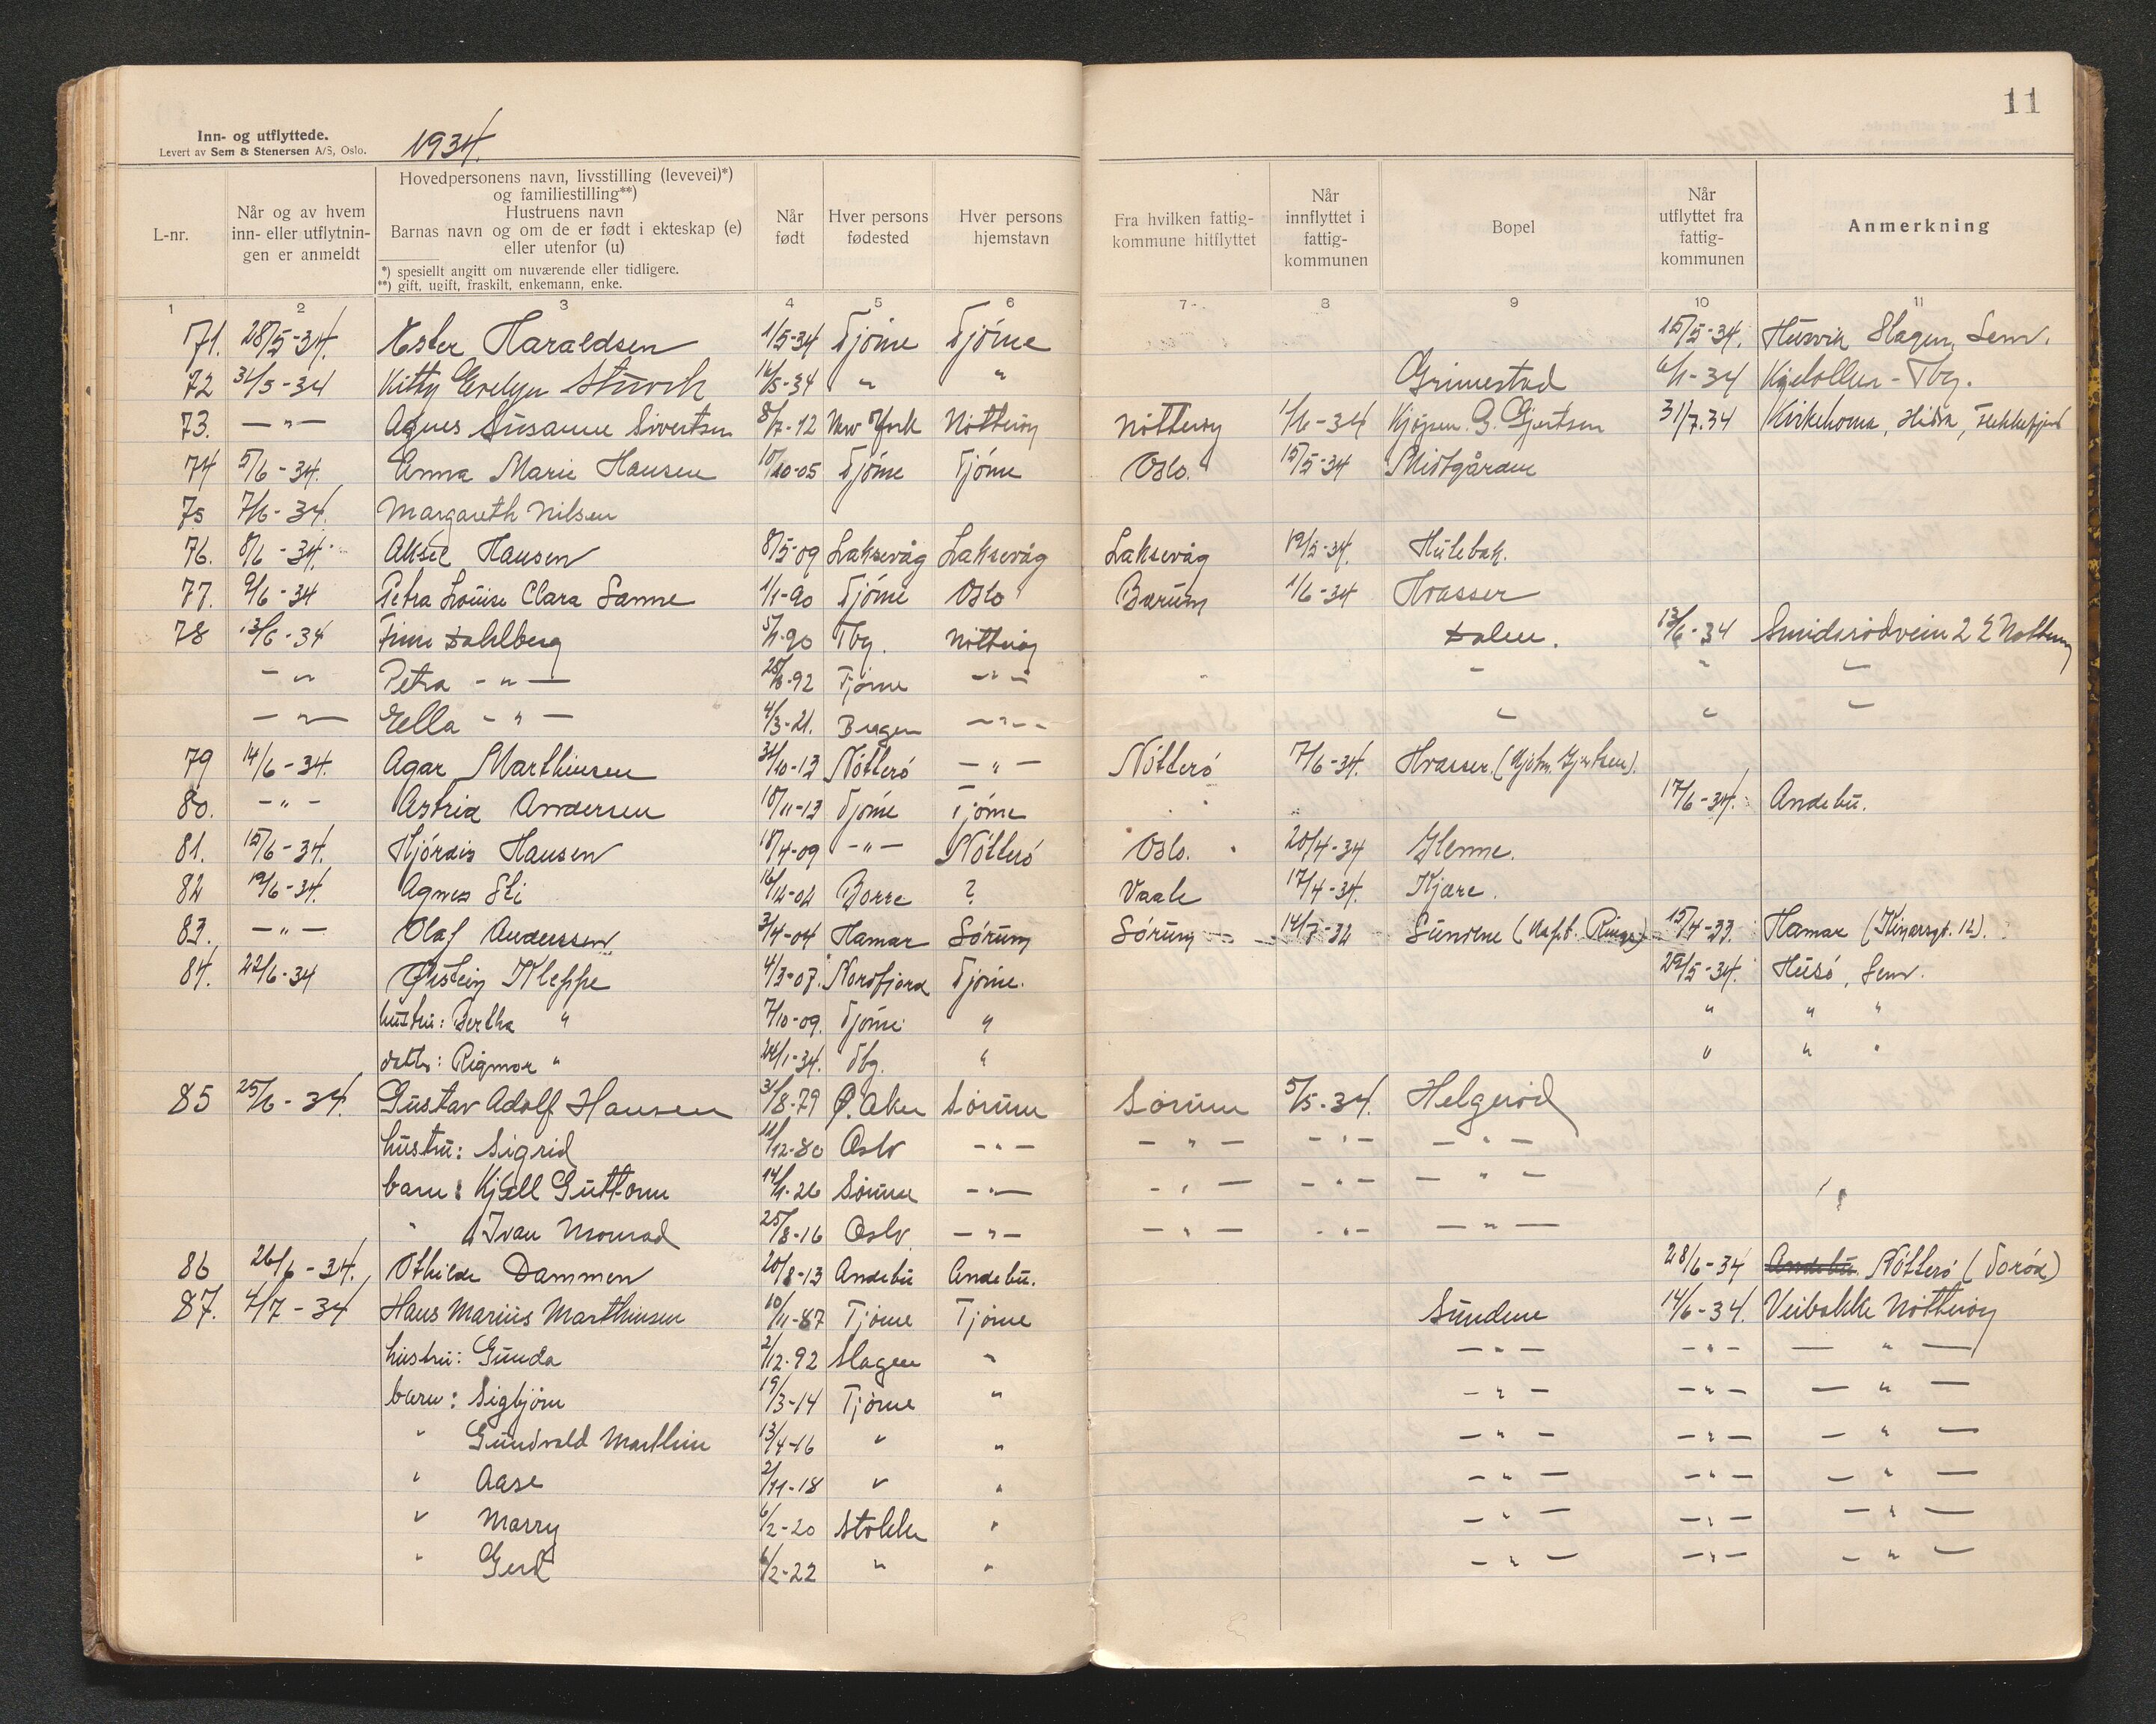 11
Inn- og utflyttede.
Levert av Sem & Stenersen A/S, Oslo.
1934.
L-nr.
Når og av hvem inn- eller utflytnin-gen er anmeldt
Hovedpersonens navn, livsstilling (levevei)*)
og familiestilling**)
Hustruens navn
Barnas navn og om de er født i ekteskap (e)
eller utenfor (u)
*) spesiellt angitt om nuværende eller tidligere.
**) gift, ugift, fraskilt, enkemann, enke.
Når født
Hver persons fødested
Hver persons hjemstavn
Fra hvilken fattig-kommune hitflyttet
Når innflyttet i fattig-kommunen
Bopel
Når utflyttet fra fattig-kommunen
Anmerkning
1 2 3 4 5 6 7 8 9 10 11
71. 28/5-34. Ester Haraldsen 1/5-34 Tjöme Tjöme 15/5-34. Husvik Slagen, Sem.
72 31/5-34 Kitty Evelyn 16/5-34 " " Grimestad 6/1-34 - Tbg.
73. -"- Agnes Susanne Sivertsen 8/7-12 New York Nötteröy Nötteröy 1/6-34 G. Gjertsen 31/7.34 Hidra, Flekkefjord
74 5/6-34. Anna Marie Hansen 10/10-05 Tjöme Tjöme Oslo. 15/5-34 Midtgården
75 7/6-34. Margareth Nilsen
76. 8/6-34. Aksel Hansen 8/5-09 Laksevåg Laksevåg Laksevåg 19/5-34. Hulebak.
77. 9/6-34 Petra Louise Clara Sanne 1/1-90 Tjöme Oslo Bærum 1/6-34 Hvasser
78 13/6-34 Finn Dahlberg 5/1-90 Tbg. Nötteröy Dalen. 13/6-34 Smidsrödvein 22 Nötteröy
-"- Petra -"- 28/8-92 Tjöme -"- - " -
-"- Ella -"- 4/3-21. Bergen -"- " " "
79 14/6-34. Agar Marthinsen 31/10-13 Nötterö -"- Nötterö 7/6-34. Hvasser. (Kjøbm. Gjertsen).
80. -"- Astrid Andersen 18/11-13 Tjöme Tjöme 17/6-34. Andebu.
81. 15/6-34. Hjördis Hansen 18/4-09 -"- Nötterö Oslo. 20/4-34 Glenne.
82 19/6-34. Agnes Sti 16/12-02 Borre ? Vaale 17/4-34. Kjære.
83. -"- Olaf Anderssen 3/4-04 Hamar Sörum Sörum 14/7-32 Sundene 15/4-33. Hamar
84. 22/6-34 Öistein Kleppe 4/3-07. Nordfjord Tjöme. 29/5-34. Husö, Sem.
hustru: Bertha " 7/10-09. Tjöme " " " "
datter: Rigmor " 24/1-34. Tbg. " " " "
85 25/6-34. Gustav Adolf Hansen 31/8-79 Ö. Aker Sörum Sörum 5/5-34. Helgeröd
hustru: Sigrid 11/12-80 Oslo -"- -"- -"- -"-
barn: Kjell Guttorm 14/1-26 Sörum -"- -"- -"- -"-
" Ivan Monrad 25/8-16 Oslo -"- -"- -"- -"-
86 26/6-34. Othilde Dammen 20/8-13 Andebu Andebu. 28/6-34 Andebu. Nötterö (Toröd)
87. 4/7-34 Hans Marius Marthinsen 10/11-87 Tjöme Tjöme Sundene 14/6-34. Veibakke Nötteröy
hustru: Gunda 2/12-92 Slagen " -"- -"- -"-
barn: Sigbjörn 19/3-14 Tjöme " -"- -"- -"-
" Gundvald Marthin 13/4-16 " " -"- -"- -"-
" Aase 2/11-18 " " -"- -"- -"-
" Marry 6/2-20 Stokke " -"- -"- -"-
" Gerd 6/2-22 " " -"- -"- -"-